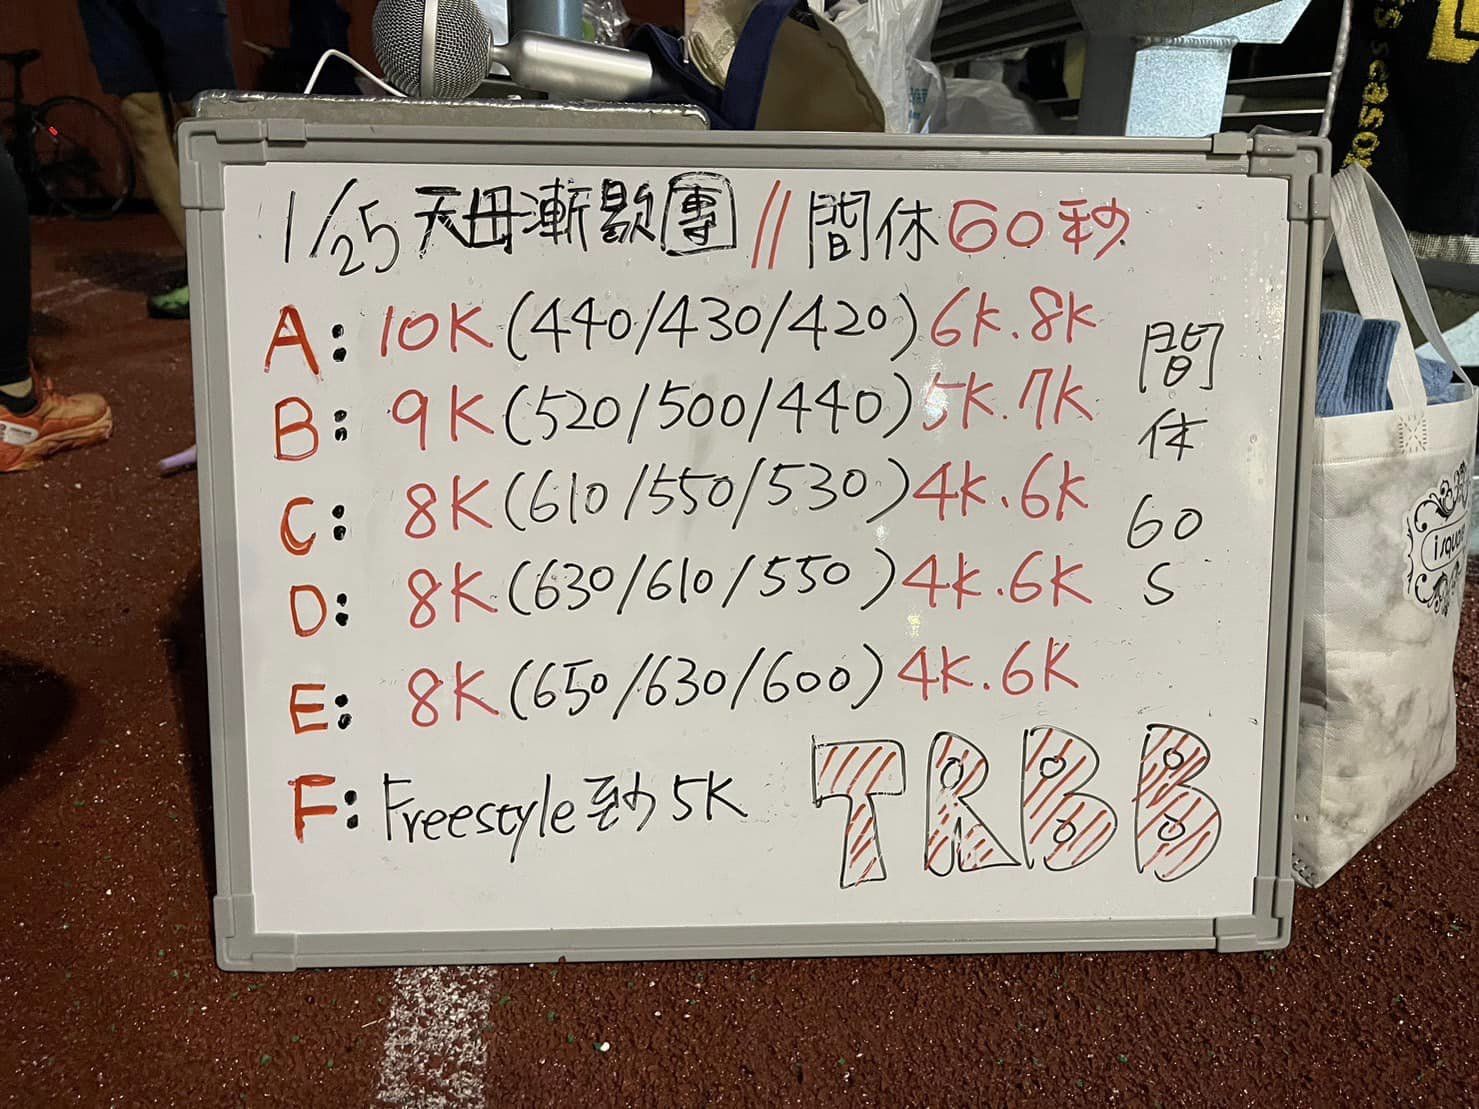 1/25 天母漸歇團 // 間休60秒
A: 10K (440/430/420) 6K.8K
B: 9K (520/500/440) 5K.7K
C: 8K (610/550/530) 4K.6K
D: 8K (630/610/550) 4K.6K
E: 8K (650/630/600) 4K.6K
間休60S
F: Freestyle 至少5K
TRBB